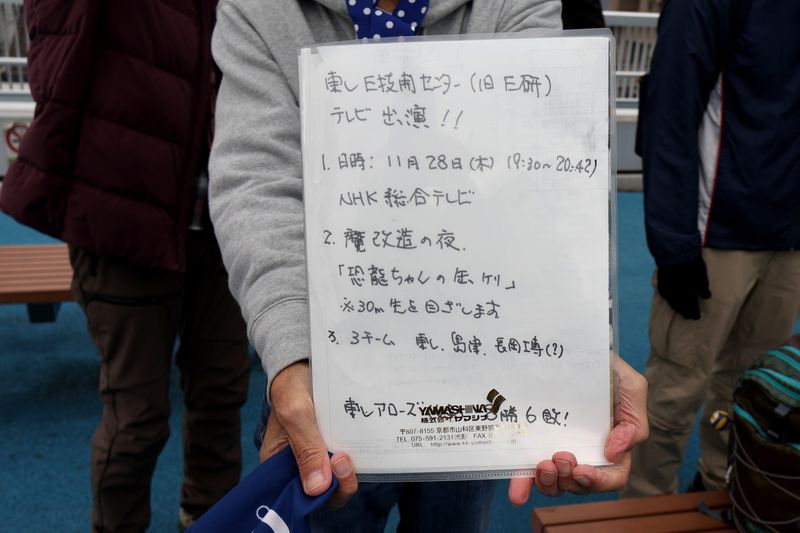 東レE技開センター(旧E研)
テレビ出演!!
1. 日時: 11月28日(木) 19:30~20:42)
NHK総合テレビ
2. 魔改造の夜.
「恐龍ちゃんの缶、ケリ」
※30m先を目ざします
3. 3チーム 東レ、島津、長岡工専(?)
東レアローズ 勝6敗!
YAMASHINA
株式会社ヤマシナ
〒607-8155 京都市山科区東野
TEL. 075-591-2131(代表) FAX. 0
URL. http://www.kk-yamash